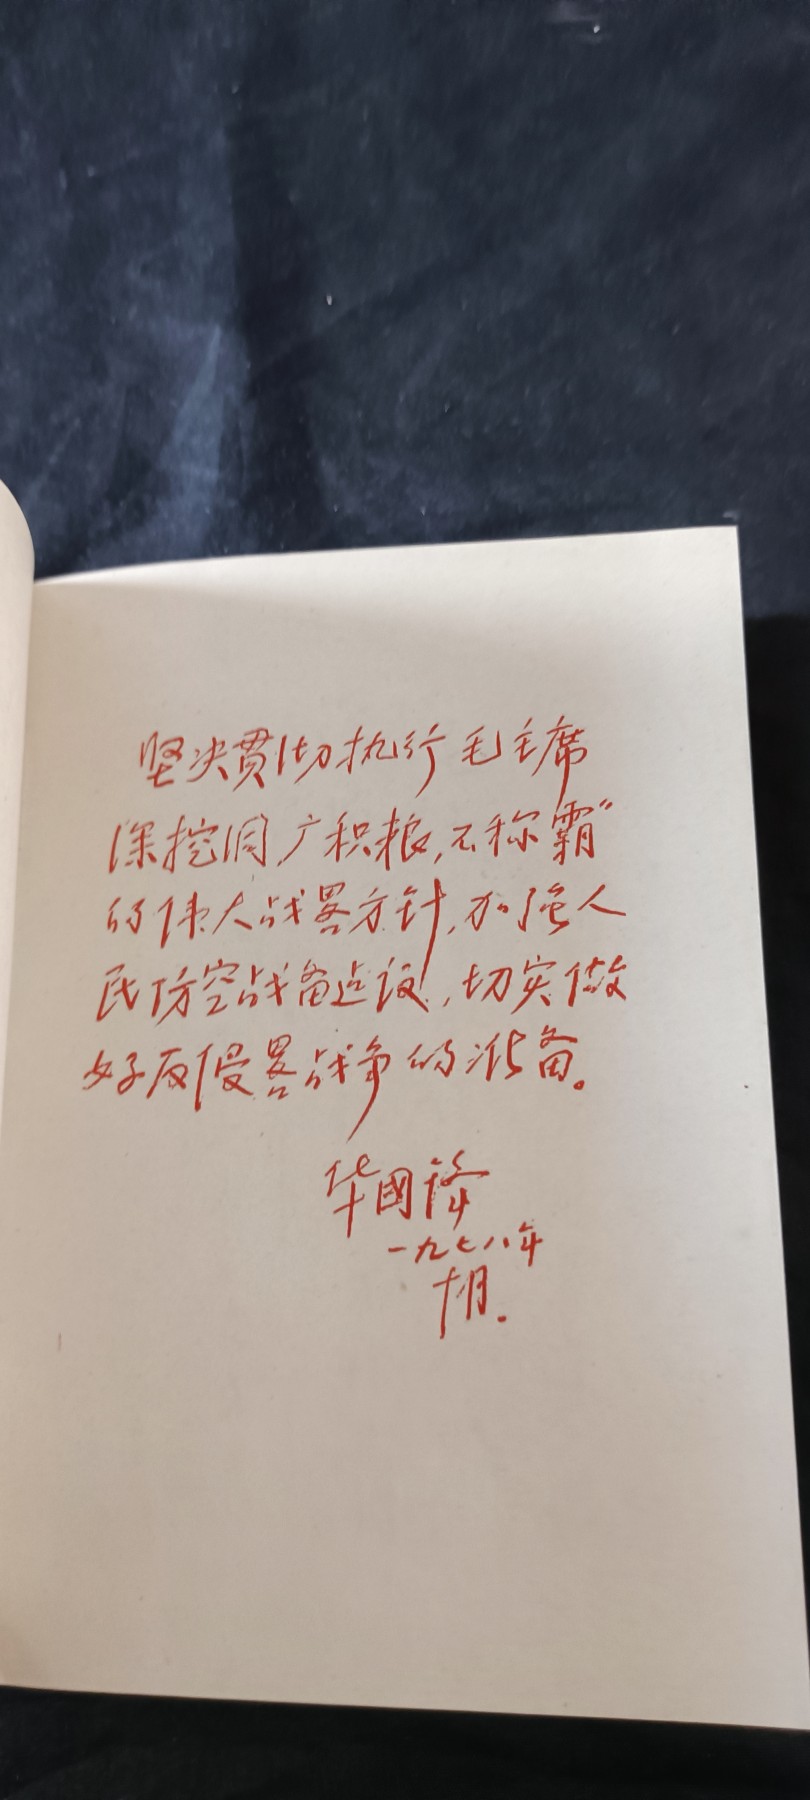 坚决贯彻执行毛主席
深挖洞,广积粮,不称霸”
的伟大战畧方针,加强人
民防空战备建设,切实做
好反侵畧战争的准备。
华國锋
一九七八年
十月.